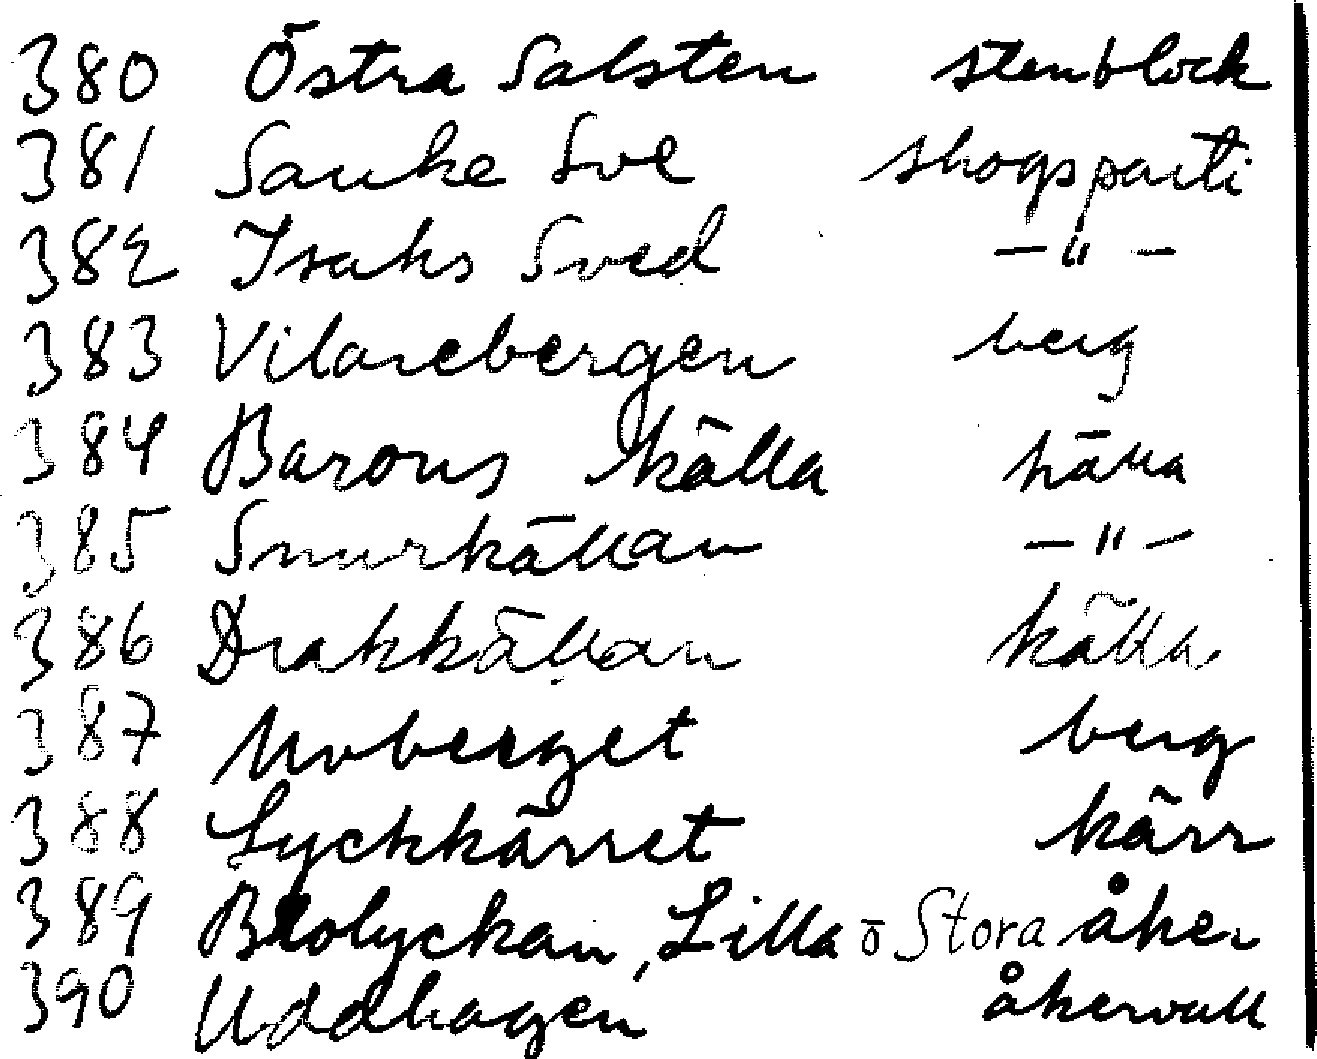 380 Östra Salsten stenblock
381 Sauke Sve skogsparti
382 Isaks Sved – " –
383 Vilarebergen berg
384 Barons källa källa
385 Snurkällan – " –
386 Drakkällan källa
387 Moberget berg
388 Lyckkärret kärr
389 Brolyckan, Lilla o Stora åker
390 Uddhagen åkervall